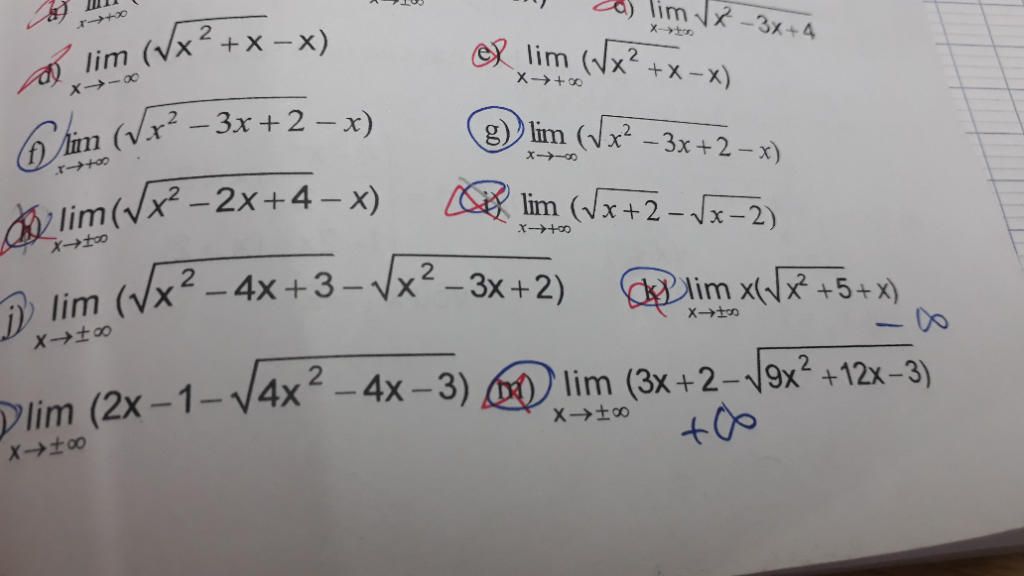 a) lim x→+∞
x→±∞
c) lim x→±∞ √x² − 3x + 4
d) lim x→−∞ (√x² + x − x)
e) lim x→+∞ (√x² + x − x)
f) lim x→+∞ (√x² − 3x + 2 − x)
g) lim x→−∞ (√x² − 3x + 2 − x)
h) lim x→±∞ (√x² − 2x + 4 − x)
i) lim x→+∞ (√x + 2 − √x − 2)
j) lim x→±∞ (√x² − 4x + 3 − √x² − 3x + 2)
k) lim x→±∞ x(√x² + 5 + x)
− ∞
) lim x→±∞ (2x − 1 − √4x² − 4x − 3)
m) lim x→±∞ (3x + 2 − √9x² + 12x − 3)
+∞